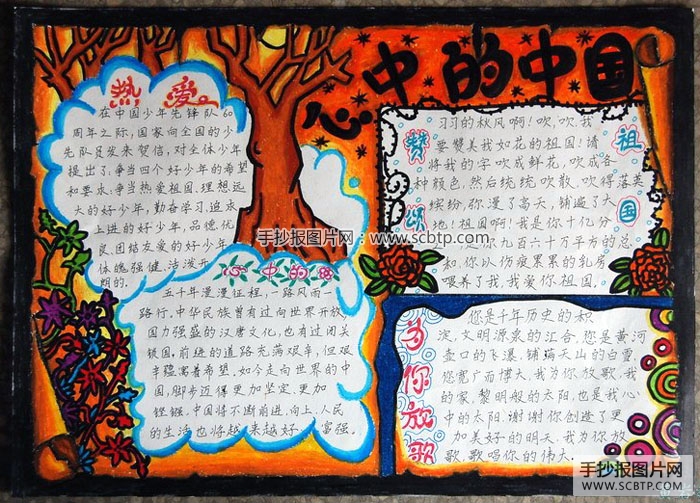 心中的中国
热爱
在中国少年先锋队60
周年之际,国家向全国的少
先队员发来贺信,对全体少年
提出了,争当四个好少年的希望
和要求,争当热爱祖国,理想远
大的好少年,勤奋学习,追求
上进的好少年,品德优
良,团结友爱的好少年
体魄强健,活泼开
朗的.
赞颂
祖国
习习的秋风啊!吹,吹,我
要赞美我如花的祖国!请
将我的字吹成鲜花,吹成各
种颜色,然后统统吹散,吹得落英
缤纷,弥漫了高天,铺遍了大
地!祖国啊!我是你十亿分
你九百六十万平方的总
和,你以伤痕累累的乳房
喂养了我,我爱你,祖国.
手抄报图片网:www.scbtp.com
心中的
五千年漫漫征程,一路风雨一
路行,中华民族曾有过向世界开放,
国力强盛的汉唐文化,也有过闭关
锁国.前进的道路充满艰辛,但艰
辛蕴寓着希望,如今走向世界的中
国,脚步迈得更加坚定,更加
铿锵,中国将不断前进,向上,人民
的生活也将越来越好,富强.
为你放歌
您是千年历史的积
淀,文明源泉的汇合,您是黄河
壶口的飞瀑,铺瑞天山的白雪,
您宽广而博大,我为你放歌,我
的家,黎明般的太阳,也是我心
中的太阳,谢谢你创造了更
加美好的明天,我为你放
歌,歌唱你的伟大.
手抄报图片网
WWW.SCBTP.COM